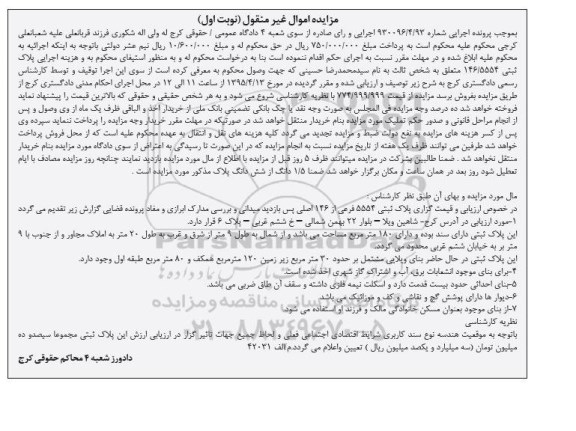 مزایده اموال غیر منقول (نوبت اول)
بموجب پرونده اجرایی شماره ۹۳۰۰۹۶/۴/۹۳ اجرایی و رای صادره از سوی شعبه ۴ دادگاه عمومی / حقوقی کرج له ولی اله شکوری فرزند قربانعلی علیه شعبانعلی
کرجی محکوم علیه محکوم است به پرداخت مبلغ ۷۵۰/۰۰۰/۰۰۰ ریال در حق محکوم له و مبلغ ۱۰/۶۰۰/۰۰۰ ریال نیم عشر دولتی باتوجه به اینکه اجرائیه به
محکوم علیه ابلاغ شده و در مهلت مقرر نسبت به اجرای حکم اقدام ننموده است بنا به درخواست محکوم له و به منظور استیفای محکوم به و هزینه اجرایی پلاک
ثبتی ۱۴۶/۵۵۵۴ متعلق به شخص ثالث به نام سیدمحمدرضا حسینی که جهت وصول محکوم به معرفی کرده است از سوی این اجرا توقیف و توسط کارشناس
رسمی دادگستری کرج به شرح زیر توصیف و ارزیابی شده و مقرر گردیده در مورخ ۱۳۹۵/۴/۱۳ از ساعت ۱۱ الی ۱۲ در محل اجرای احکام مدنی دادگستری کرج از
طریق مزایده بفروش برسد مزایده از قیمت ۷۷۴/۹۹۹/۹۹۹ با نظریه کارشناسی شروع می شود و به هر شخص حقیقی و حقوقی که بالاترین قیمت را پیشنهاد نماید
فروخته خواهد شد ده درصد وجه مزایده فی المجلس به صورت وجه نقد یا چک بانکی تضمینی بانک ملی از خریدار اخذ و الباقی ظرف یک ماه از وی وصول و پس
از انجام مراحل قانونی و صدور حکم تملیک مورد مزایده بنام خریدار منتقل خواهد شد در صورتیکه در مهلت مقرر خریدار وجه مزایده را پرداخت ننماید سپرده وی
پس از کسر هزینه های مزایده به نفع دولت ضبط و مزایده تجدید می گردد کلیه هزینه های نقل و انتقال به عهده محکوم علیه است که از محل فروش پرداخت
خواهد شد طرفین می توانند ظرف یک هفته از تاریخ مزایده نسبت به انجام مزایده که در این صورت تا رسیدگی به اعتراض از سوی دادگاه مورد مزایده بنام خریدار
منتقل نخواهد شد . ضمنا طالبین شرکت در مزایده میتوانند ظرف ۵ روز قبل از مزایده با اطلاع از مال مورد مزایده بازدید نمایند چنانچه روز مزایده مصادف با ایام
تعطیل شود روز بعد در همان ساعت و مکان برگزار خواهد شد ضمنا ۱/۵ دانگ از شش دانگ پلاک مذکور مورد مزایده است .
مال مورد مزایده و بهای آن طبق نظر کارشناس :
در خصوص ارزیابی و قیمت گزاری پلاک ثبتی ۵۵۵۴ فرعی از ۱۴۶ اصلی پس بازدید میدانی و بررسی مدارک ابرازی و مفاد پرونده قضایی گزارش زیر تقدیم می گردد
۱-مورد ارزیابی در آدرس کرج- شاهین ویلا – بلوار ۲۲ بهمن شمالی – خ ششم غربی – پلاک ۶ قرار دارد.
این پلاک ثبتی دارای سند بوده و دارای ۱۸۰ متر مربع مساحت می باشد و از شمال به طول ۹ متر از شرق و غرب به طول ۲۰ متر به املاک مجاور و از جنوب با ۹
متر بر به خیابان ششم غربی محدود می گردد.
این پلاک ثبتی در حال حاضر بنای ویلایی مشتمل بر حدود ۳۰ متر مربع زیر زمین ۱۲۰ مترمربع همکف و ۸۰ متر مربع طبقه اول وجود دارد.
۴-برای بنای موجود انشعابات برق، آب و اشتراک گاز شهری اخذ شده است.
۵-بنای احداثی حدود بیست قدمت دارد و اسکلت نیمه فلزی داشته و سقف آن طاق ضربی می باشد.
۶-دیوار ها دارای پوشش گچ و نقاشی و کف و موزائیک می باشد
۷-از بنای موجود بعنوان مسکن خانوادگی مالک و فرزند او استفاده می شود.
نظریه کارشناسی
باتوجه به موقعیت هندسه نوع سند کاربری شرایط اقتصادی اجتماعی فعلی و لحاظ جمیع جهات تاثیر گزار در ارزیابی ارزش این پلاک ثبتی مجموعا سیصدو ده
میلیون تومان (سه میلیارد و یکصد میلیون ریال ) تعیین واعلام می گردد.م الف ۴۲۰۳۱
دادورز شعبه ۴ محاکم حقوقی کرج